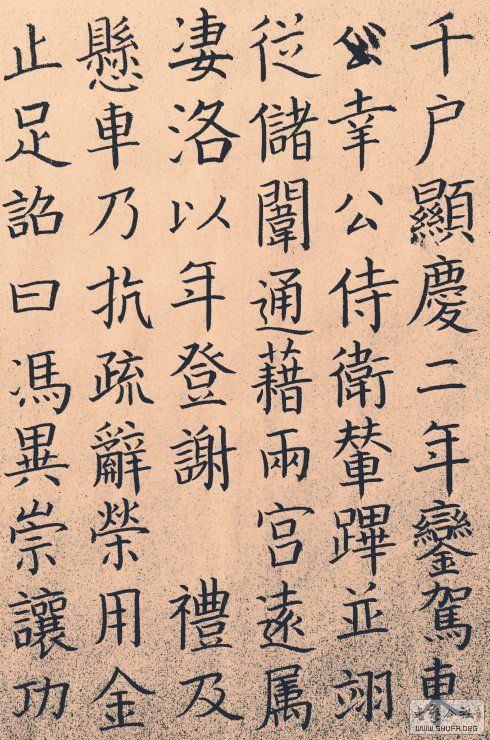 千户顯慶二年鑾駕東
幸公侍衛輦蹕並翊
從儲闈通藉兩宮遠属
凄洛以年登謝 禮及
懸車乃抗疏辭榮用金
止足詔曰馮異崇讓功
WWW.SHUFA.ORG